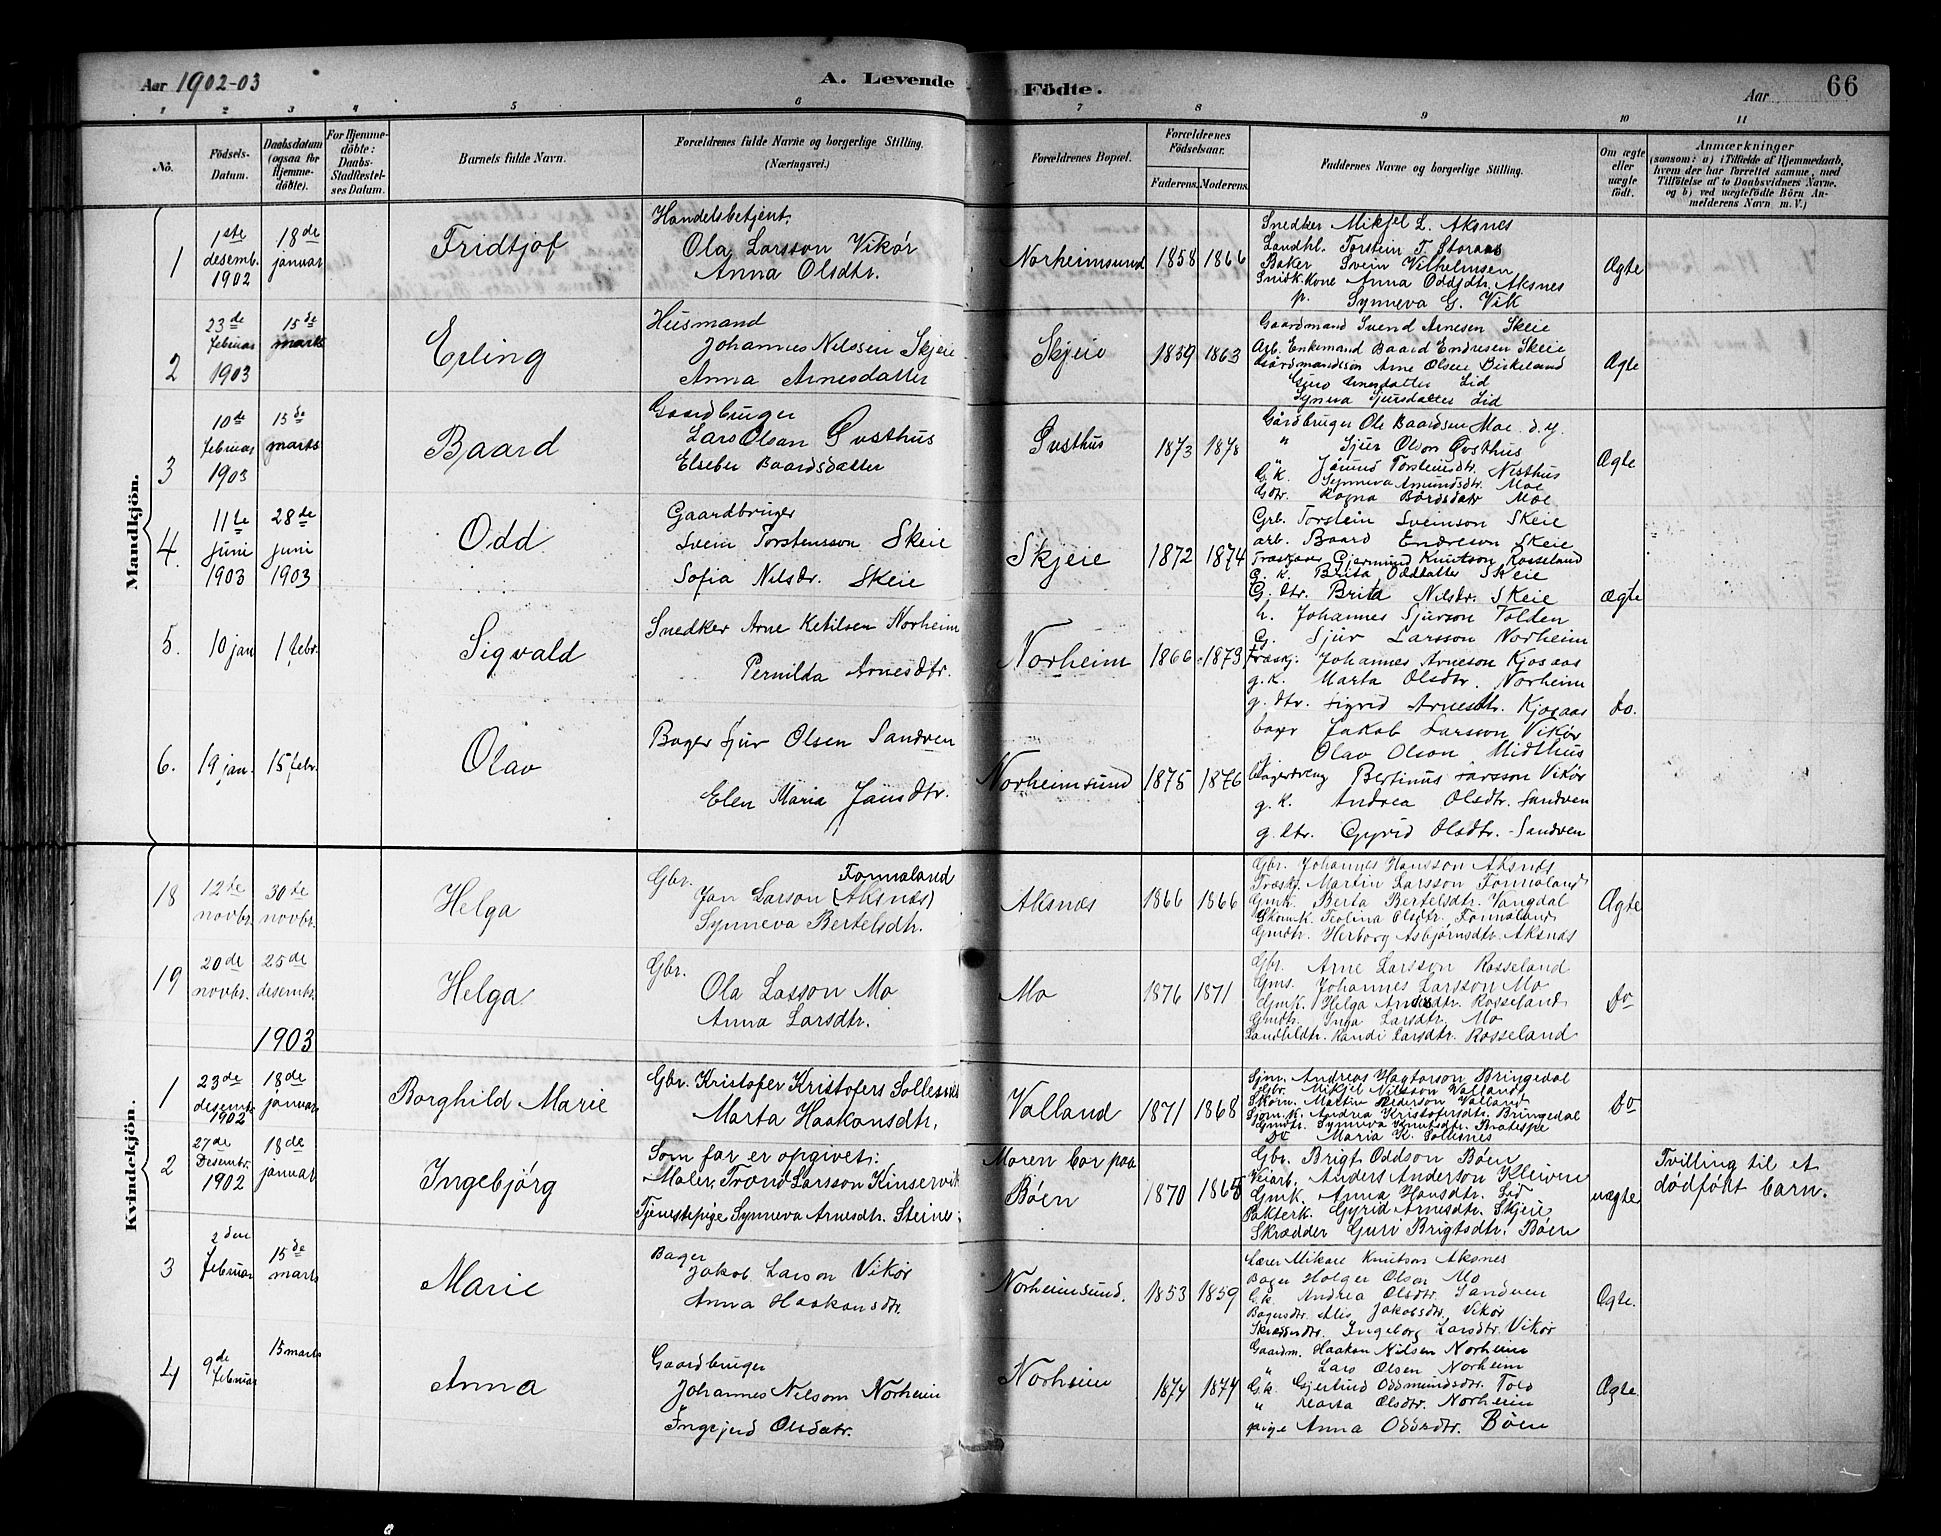 Aar 1902-03
A. Levende
Fødte.
Aar
66
1 2 3 4 5 6 7 8 9 10 11
No.
Fødsels-Datum.
Daabsdatum (ogsaa for Hjemme-døbte).
For Hjemme-døbte: Daabs-Stadfæstel-ses Datum.
Barnets fulde Navn.
Forældrenes fulde Navne og borgerlige Stilling. (Næringsvei.)
Forældrenes Bopæl.
Forældrenes Fødselsaar.
Faderens.
Moderens.
Faddernes Navne og borgerlige Stilling.
Om ægte eller uægte født.
Anmærkninger
(saasom: a) i Tilfælde af Hjemmedaab, hvem der har forrettet samme, med Tilføielse af to Daabsvidners Navne, og b) ved uægtefødte Børn An-melderens Navn m. V.)
Mandkjön.
1
1ste desemb. 1902
18de januar
Fridtjof
Handelsbetjent.
Ola Larsson Vikör
Anna Olsdtr.
Norheimsund
1858
1866
Snedker Mikjel L. Aksnes
Landhl. Torstein T. Storaas
Baker Svein Vilhelmsen
Snidk.kone Anna Oddsdtr. Aksnes
p. Synneva G. Vik
Ægte
2
23de februar 1903
15de marts
Erling
Husmand
Johannes Nilssen Skjeie
Anna Arnesdatter
Skjeie
1859
1863
Gaardmand Svend Arnesen Skeie
Arb. Enkemand Baard Endresen Skeie
Gårdmandssön Arne Olsen Birkeland
Guro Arnesdatter Lid
Synneva Sjursdatter Lid
Ægte
3
10de februar 1903
15de marts
Baard
Gaardbruger
Lars Olsen Øvsthus
Elseber Baardsdatter
Øvsthus
1873
1878
Gårdbruger Ole Baardsen Moe d.y.
" Sjur Olson Øvsthus
G.k. Jörund Torsteinsdtr. Nesthus
" Synneva Amundsdtr. Moe
Gdtr. Ragna Bårdsdatr Moe
Ægte
4.
11te juni 1903
28de juni 1903
Odd
Gaardbruger
Svein Torstensson Skeie
Sofia Nilsdr. Skeie
Skjeie
1872
1874
Grb. Torstein Sveinson Skeie
arb. Baard Endreson Skeie
Træskjær Gjermund Knutson Rosseland
G. k. Brita Oddtatter Skeie
G. dtr. Brita Nilsdtr. Skeie
ægte
5.
10 jan
1 febr.
Sigvald
Snedker Arne Ketilsen Norheim
Pernilda Arnesdtr.
Norheim
1866
1873
h. Johannes Sjurson Tolden
G. Sjur Larsson Norheim
Træskj. Johannes Arneson Kjosaas
g.k. Marta Olsdtr. Norheim
g. dtr. Sigrid Arnesdtr. Kjosaas
do.
6.
19 jan.
15 febr.
Olav
Bager Sjur Olsen Sandven
Elen Maria Jansdtr.
Norheimsund
1875
1876
bager Jakob Larsson Vikør
Olav Olson Midthus
bagerdreng Bertinus Larsson Vikør
g.k. Andrea Olsdtr. Sandven
g. dtr. Gyrid Olsdtr. Sandven
Kvindekjön.
18
12te novbr.
30te novbr.
Helga
Gbr. Fonnaland
Jan Larson (Aksnes)
Synneva Bertelsdtr.
Aksnæs
1866
1866
Gbr. Johannes Hansson Aksnes
Træskj. Martin Larsson Fonnaland
Gmk. Berta Bertelsdtr. Vangdal
Skomk. Teolina Olsdtr. Fonnaland
Gmdtr. Herborg Asbjørnsdtr. Aksnes
Ægte
19
20de novbr.
25de desembr.
Helga
Gbr.
Ola Lasson Mo
Anna Larsdtr.
Mo
1876
1871
Gbr. Arne Larsson Rosseland
Gms. Johannes Larsson Mo
Gmk. Helga Andersdtr. Rosseland
Gmdtr. Inga Larsdtr. Mo
Landhldtr. Randi Larsdtr. Rosseland
Do
1903
1
23de desemb. 1902
18de januar
Borghild Marie
Gbr. Kristofer Kristofers Sollesnes
Marta Haakonsdtr.
Valland
1871
1868
Sjm. Andreas Hagtorson Bringedal
Gbr. Mikjel Nilsson Valland
Skom. Martin Pederson Valland
Sjöm.k. Andrea Kristofersdtr. Bringedal
Gmdtr. Synneva Knutsdtr. Bratespe
Do Maria K. Sollesnes
Do
2
27de Desembr. 1902
18de januar
Ingebjörg
Som far er opgivet:
Maler Trond Larsson Kinservik
Tjenestepige Synneva Arnesdtr. Steine.
Moren bor paa Böen
1870
1865
Gbr. Brigt Oddson Böen
Veiarb. Anders Anderson Kleiven
Gmk. Anna Hansdtr. Lid
Pakterk. Gyrid Arnesdtr. Skjeie
Skrædder Guri Brigtsdtr. Böen
uægte
Tvilling til et dödfødt barn.
3
2den februar
15de marts
Marie
Bager
Jakob Larson Vikör
Anna Haakonsdtr.
Norheimsund.
1853
1859
Lærer Mikael Knutson Aksnes
Bager Holger Olson Mo
G.k. Andrea Olsdtr. Sandven
Bagersdtr. Alis Jakobsdtr. Vikør
Skrædderdtr. Ingeborg Larsdtr. Vikør
Ægte.
4
9de februar
15 marts
Anna
Gaardbruger
Johannes Nilsson Norheim
Ingrjerd Olsdatr.
Norheim
1874
1874
Gaardm. Haakon Nilsen Norheim
" Lars Olsen Norheim
G.k. Gjertrud Oddmundsdtr. Tolo
" Marta Olsdtr. Norheim
pige Anna Oddsdtr. Böen
Ægte